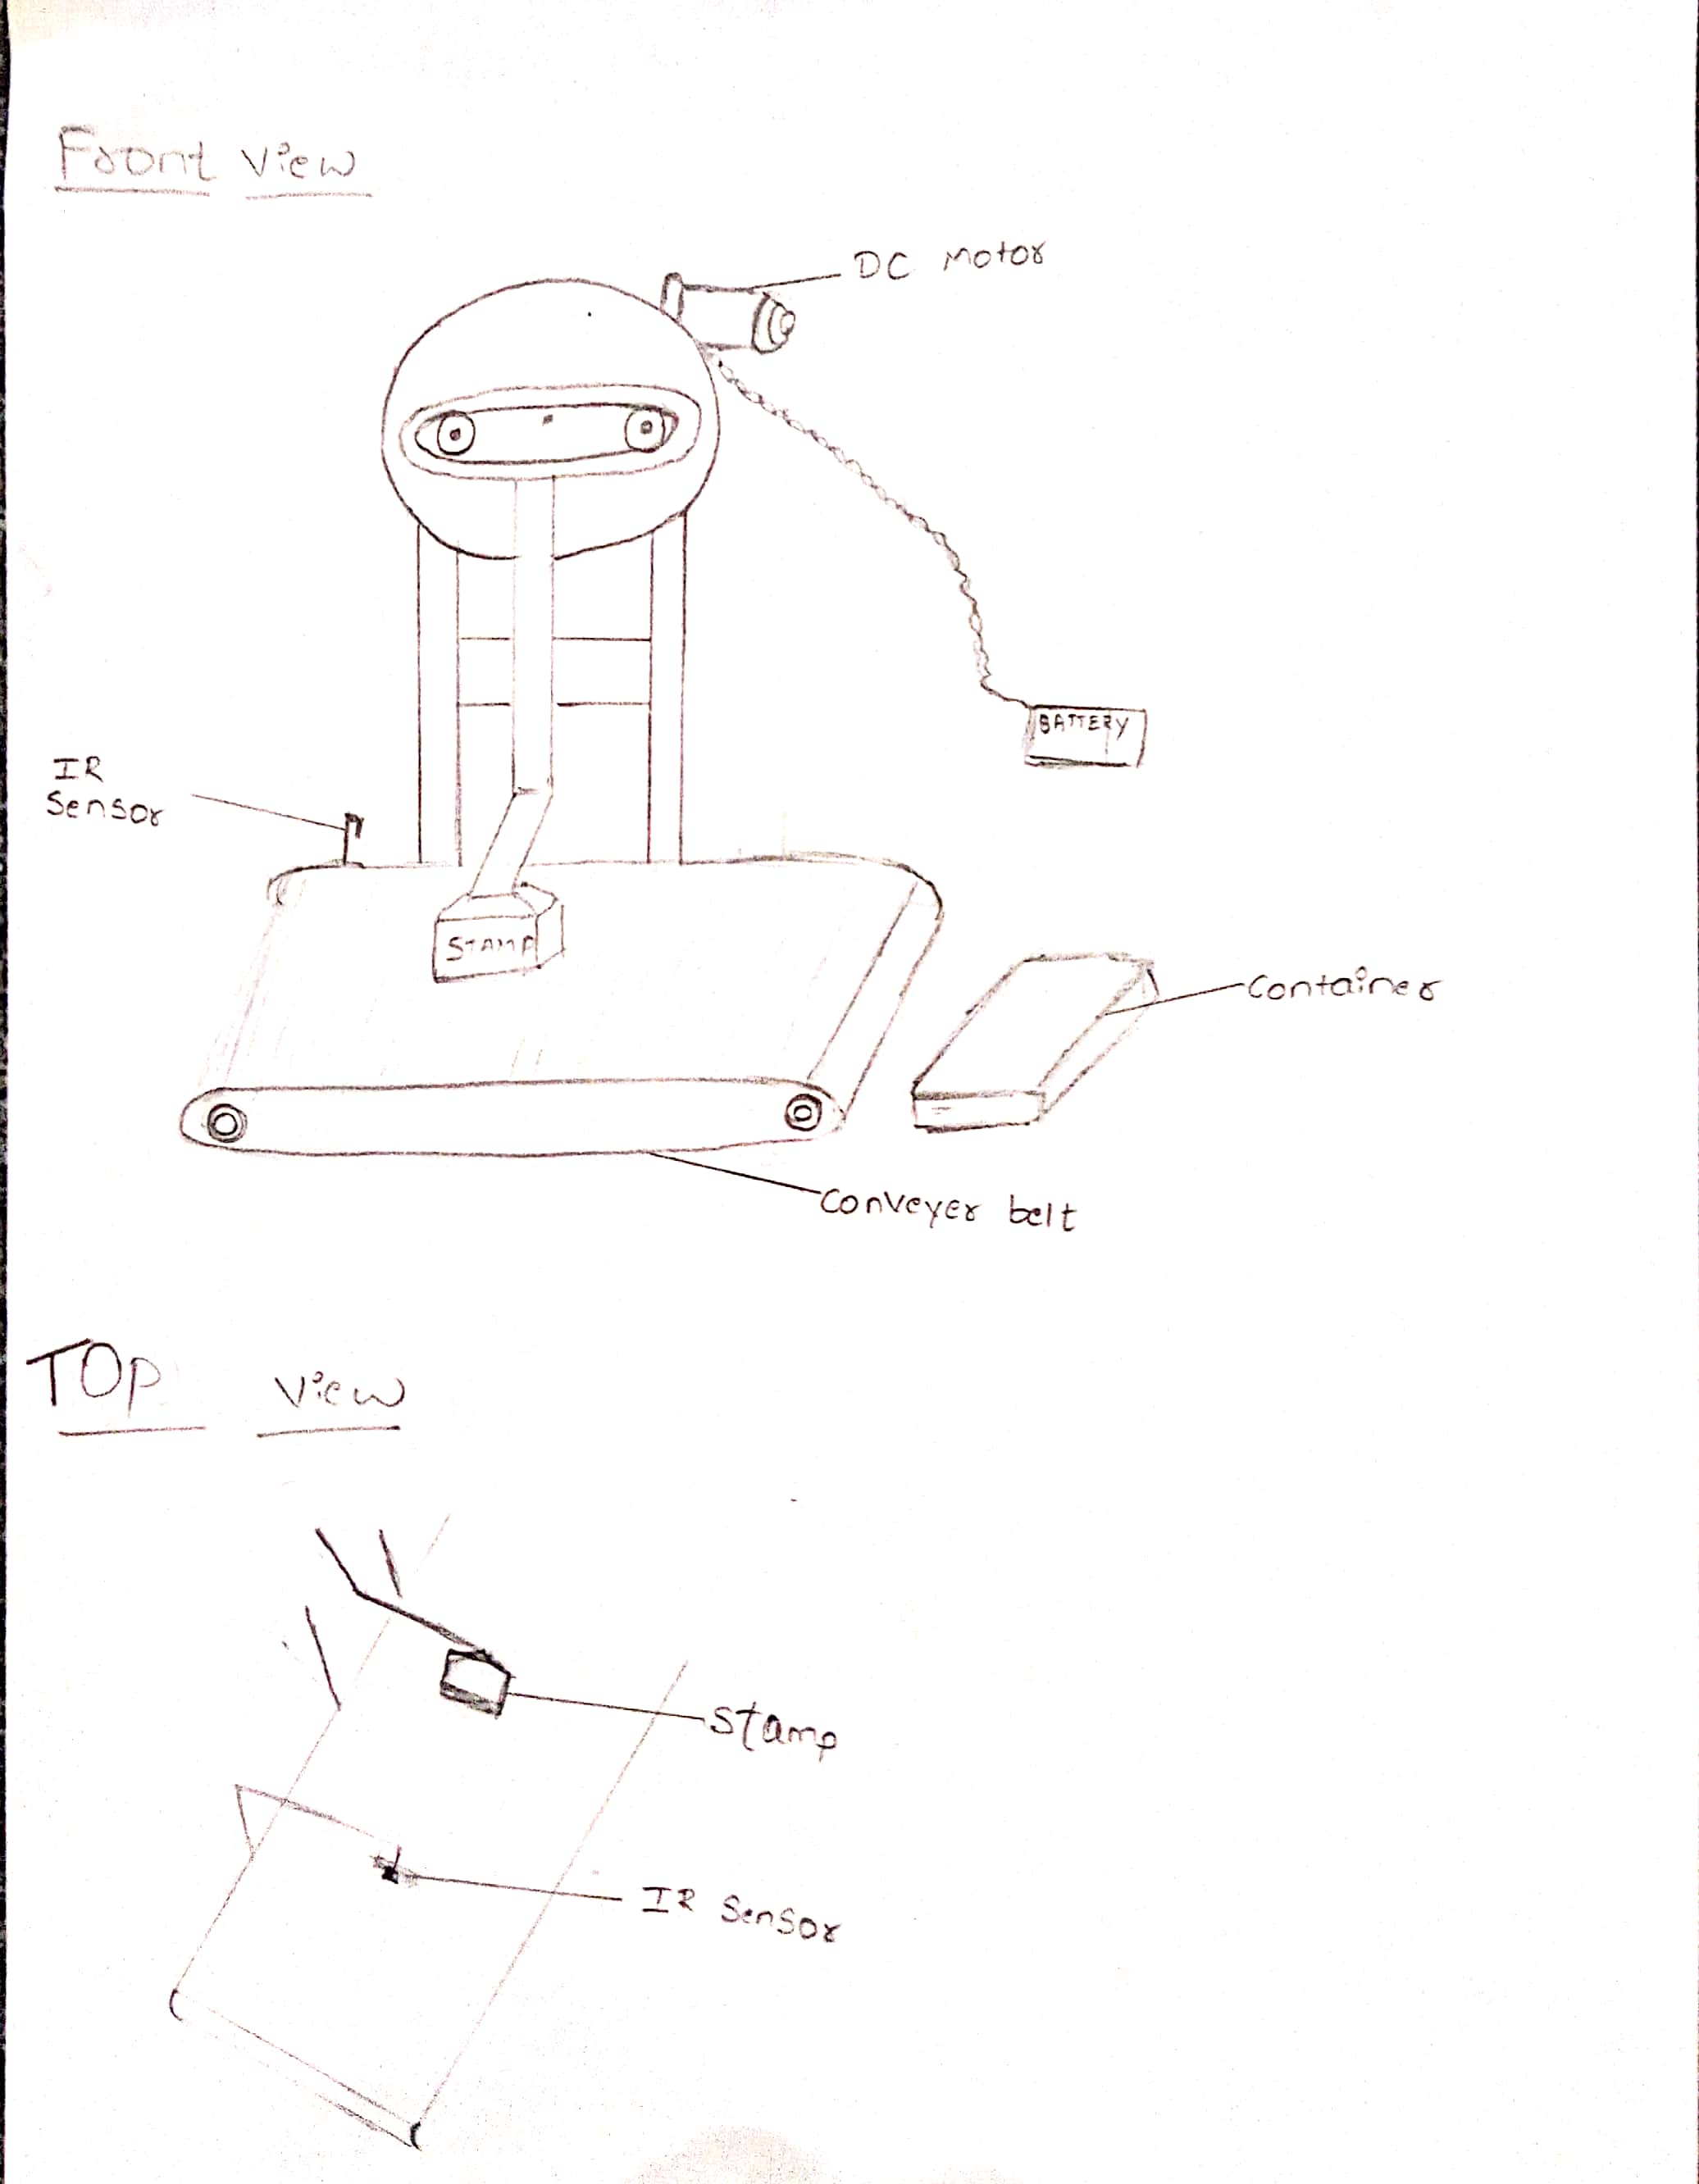 Front view
DC Motor
BATTERY
IR
Sensor
STAMP
Container
Conveyer belt
TOP view
Stamp
IR Sensor